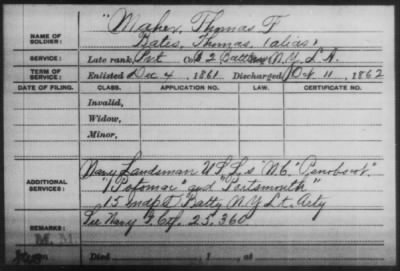 "Maher, Thomas F
NAME OF SOLDIER:
Bates, Thomas, (alias)
SERVICE: Late rank, Pvt Co. 2 Battery N.Y. L.A.
TERM OF SERVICE: Enlisted Dec 4, 1861 Discharged Oct. 11, 1862
DATE OF FILING. CLASS. APPLICATION NO. LAW. CERTIFICATE NO.
Invalid,
Widow,
Minor,
ADDITIONAL SERVICES:
Navy Landsman U.S.S. "N.C." "Penobscot"
"Potomac" and "Portsmouth"
15 Batty N Y Lt. Arty
REMARKS: See Navy Ctf. 25.360
M. M
Died , 1 , at